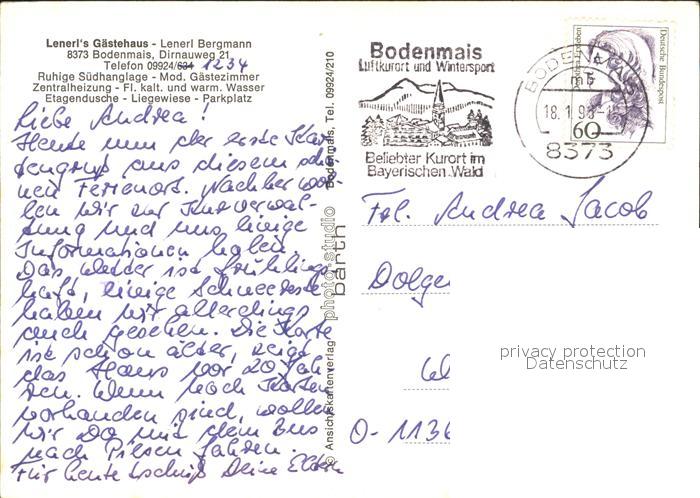 Lenerl's Gästehaus - Lenerl Bergmann
8373 Bodenmais, Dirnauweg 21
Telefon 09924/634 1234
Ruhige Südhanglage - Mod. Gästezimmer
Zentralheizung - Fl. kalt. und warm. Wasser
Etagendusche - Liegewiese - Parkplatz
Liebe Andrea!
Heute nun der erste Kar-
tengruß aus diesem schö-
nen Ferienort. Nachher wol-
len wir zur Kurverwal-
tung und uns einige
Informationen holen.
Das Wetter ist frühlings-
haft, einige Schneereste
haben wir allerdings
auch gesehen. Die Karte
ist schon älter, zeigt
das Haus vor 20 Jah-
ren. Wenn noch Karten
vorhanden sind, wollen
wir Do mit dem Bus
nach Pilsen fahren.
Für heute tschüß Deine Eltern
© Ansichtskartenverlag photo-studio barth Bodenmais, Tel. 09924/210
Bodenmais
Luftkurort und Wintersport
Beliebter Kurort im
Bayerischen Wald
BODENMAIS
mb
18.1.9
8373
Deutsche Bundespost
60
Frl. Andrea Jacob
Dolge
O-113
privacy protection
Datenschutz